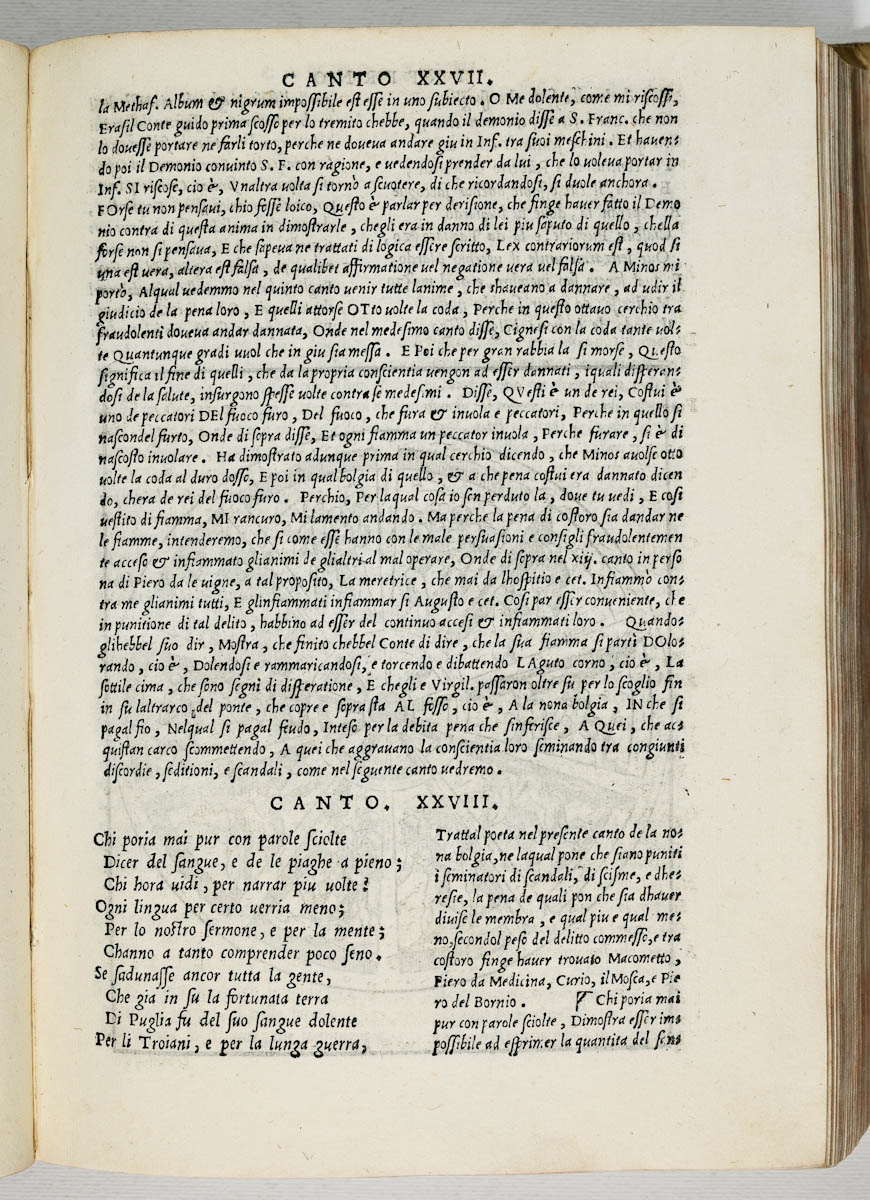 CANTO XXVII.
la Methaf. Album & nigrum impossibile est esse in uno subiecto. O Me dolente, come mi riscossi,
Erasil Conte guido prima scosso per lo tremito chebbe, quando il demonio disse a S. Franc. che non
lo douesse portare ne farli torto, perche ne doueua andare giu in Inf. tra suoi meschini. Et hauen⸗
do poi il Demonio conuinto S. F. con ragione, e uedendosi prender da lui, che lo uoleua portar in
Inf. SI riscose, cio è, Vnaltra uolta si tornò a scuotere, di che ricordandosi, si duole anchora.
FOrse tu non pensaui, chio fosse loico, Questo è parlar per derisione, che finge hauer fatto il Demo
nio contra di questa anima in dimostrarle, chegli era in danno di lei piu saputo di quello, chella
forse non si pensaua, E che sapeua ne trattati di logica essere scritto, Lex contrariorum est, quod si
una est uera, altera est falsa, de qualibet affirmatione uel negatione uera uel falsa. A Minos mi
portò, Alqual uedemmo nel quinto canto uenir tutte lanime, che shaueano a dannare, ad udir il
giudicio de la pena loro, E quelli attorse OTto uolte la coda, Perche in questo ottauo cerchio tra
fraudolenti doueua andar dannata, Onde nel medesimo canto disse, Cignesi con la coda tante uol⸗
te Quantunque gradi uuol che in giu sia messa. E Poi che per gran rabbia la si morse, Questo
significa il fine di quelli, che da la propria conscientia uengon ad esser dannati, iquali disperan⸗
dosi de la salute, insurgono spesse uolte contra se medesimi. Disse, QVesti è un de rei, Costui è
uno de peccatori DEl fuoco furo, Del fuoco, che fura & inuola e peccatori, Perche in quello si
nascondel furto, Onde di sopra disse, Et ogni fiamma un peccator inuola, Perche furare, si è di
nascosto inuolare. Ha dimostrato adunque prima in qual cerchio dicendo, che Minos auolse otto
uolte la coda al duro dosso, E poi in qual bolgia di quello, & a che pena costui era dannato dicen
do, chera de rei del fuoco furo. Perchio, Per laqual cosa io son perduto la, doue tu uedi, E cosi
uestito di fiamma, MI rancuro, Mi lamento andando. Ma perche la pena di costoro sia dandar ne
le fiamme, intenderemo, che si come esse hanno con le male persuasioni e consigli fraudolentemen
te acceso & infiammato glianimi de glialtri al mal operare, Onde di sopra nel xiij. canto in perso
na di Piero da le uigne, a tal proposito, La meretrice, che mai da lhospitio e cet. Infiammò con⸗
tra me glianimi tutti, E glinfiammati infiammar si Augusto e cet. Cosi par esser conueniente, che
in punitione di tal delito, habbino ad esser del continuo accesi & infiammati loro. Quando⸗
glihebbel suo dir, Mostra, che finito chebbel Conte di dire, che la sua fiamma si partì DOlo⸗
rando, cio è, Dolendosi e rammaricandosi, e torcendo e dibattendo LAguto corno, cio è, La
sottile cima, che sono segni di disperatione, E chegli e Virgil. passaron oltre su per lo scoglio fin
in su laltrarco del ponte, che copre e soprasta AL fosso, cio è, A la nona bolgia, IN che si
pagal fio, Nelqual si pagal feudo, Inteso per la debita pena che sinferisce, A Quei, che ac⸗
quistan carco scommettendo, A quei che aggrauano la conscientia loro seminando tra congiunti
discordie, seditioni, e scandali, come nel seguente canto uedremo.
CANTO. XXVIII.
Chi poria mai pur con parole sciolte
Dicer del sangue, e de le piaghe a pieno;
Chi hora uidi, per narrar piu uolte?
Ogni lingua per certo uerria meno;
Per lo nostro sermone, e per la mente;
Channo a tanto comprender poco seno.
Se sadunasse ancor tutta la gente,
Che gia in su la fortunata terra
Di Puglia fu del suo sangue dolente
Per li Troiani, e per la lunga guerra,
Trattal poeta nel presente canto de la no⸗
na bolgia, ne laqual pone che siano puniti
i seminatori di scandali, di scisme, e dhe⸗
resie, la pena de quali pon che sia dhauer
diuise le membra, e qual piu e qual me⸗
no, secondol peso del delitto commesso, e tra
costoro finge hauer trouato Macometto,
Piero da Medicina, Curio, il Mosca, e Pie
ro del Bornio. Chi poria mai
pur con parole sciolte, Dimostra esser im⸗
possibile ad esprimer la quantita del san⸗